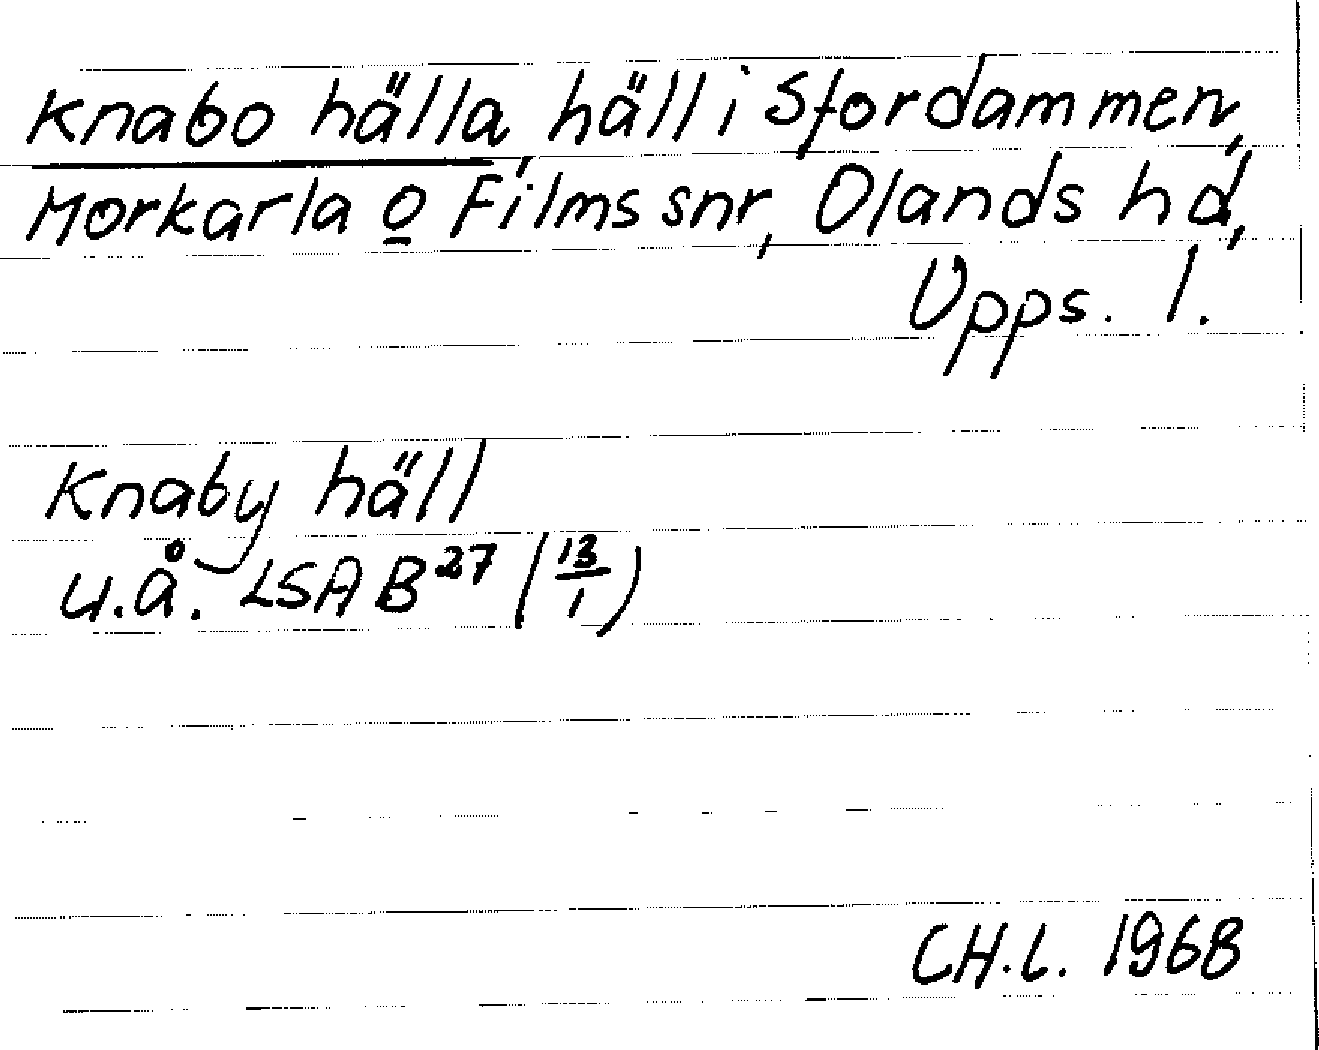 Knabo hälla, häll i Stordammen,
Morkarla o Films snr, Olands hd,
Upps. l.
Knaby häll
u.å. LSA B27 (13/1)
CH.L. 1968